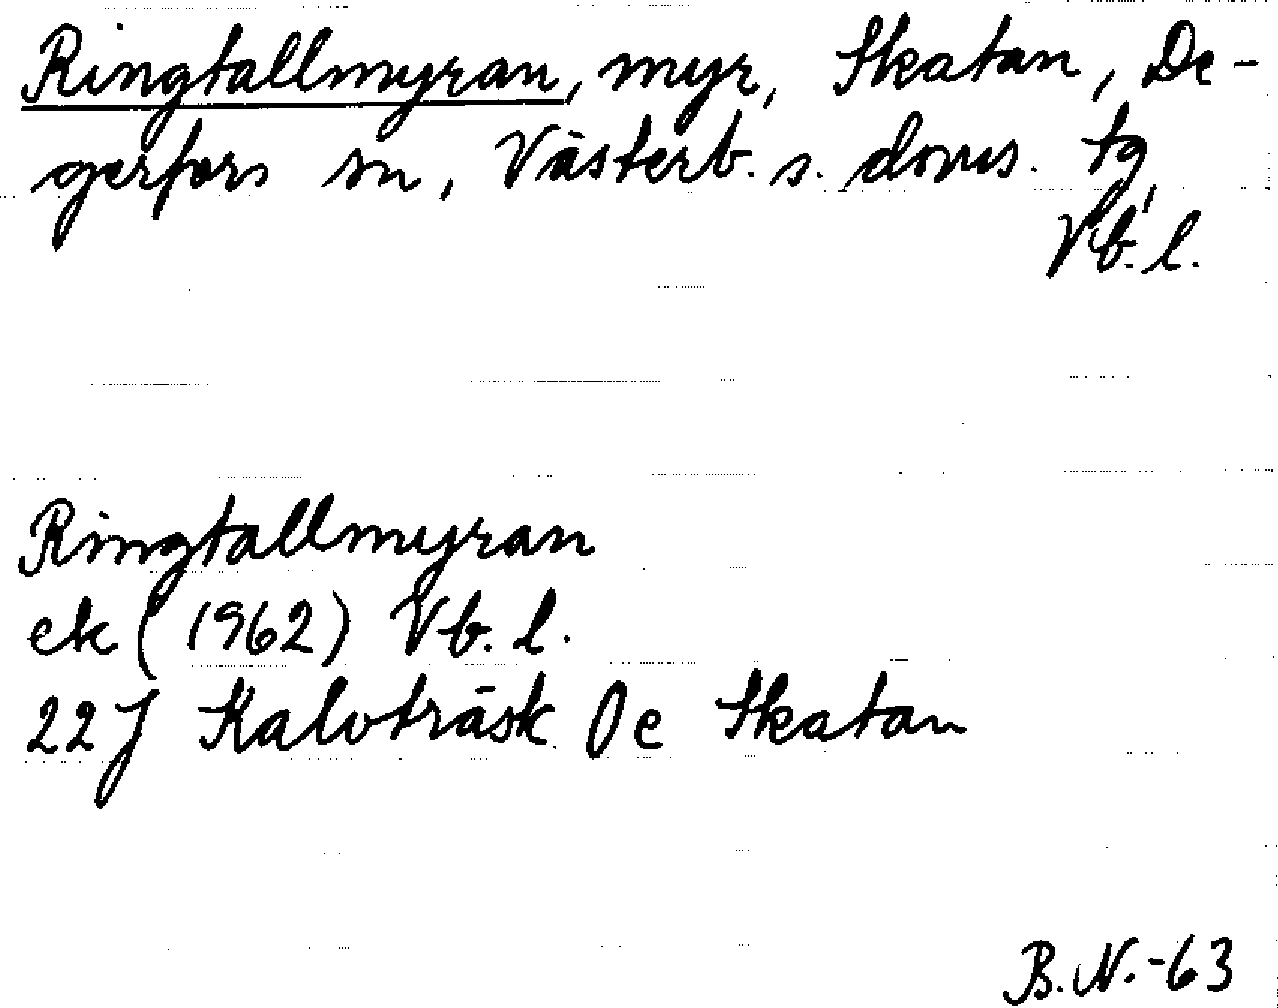 Ringtallmyran, myr, Skatan, De-
gerfors sn, Västerb. s. doms. tg,
Vb. l.
Ringtallmyran
ek (1962) Vb. l.
22J Kalvträsk 0e Skatan
B.N.-63